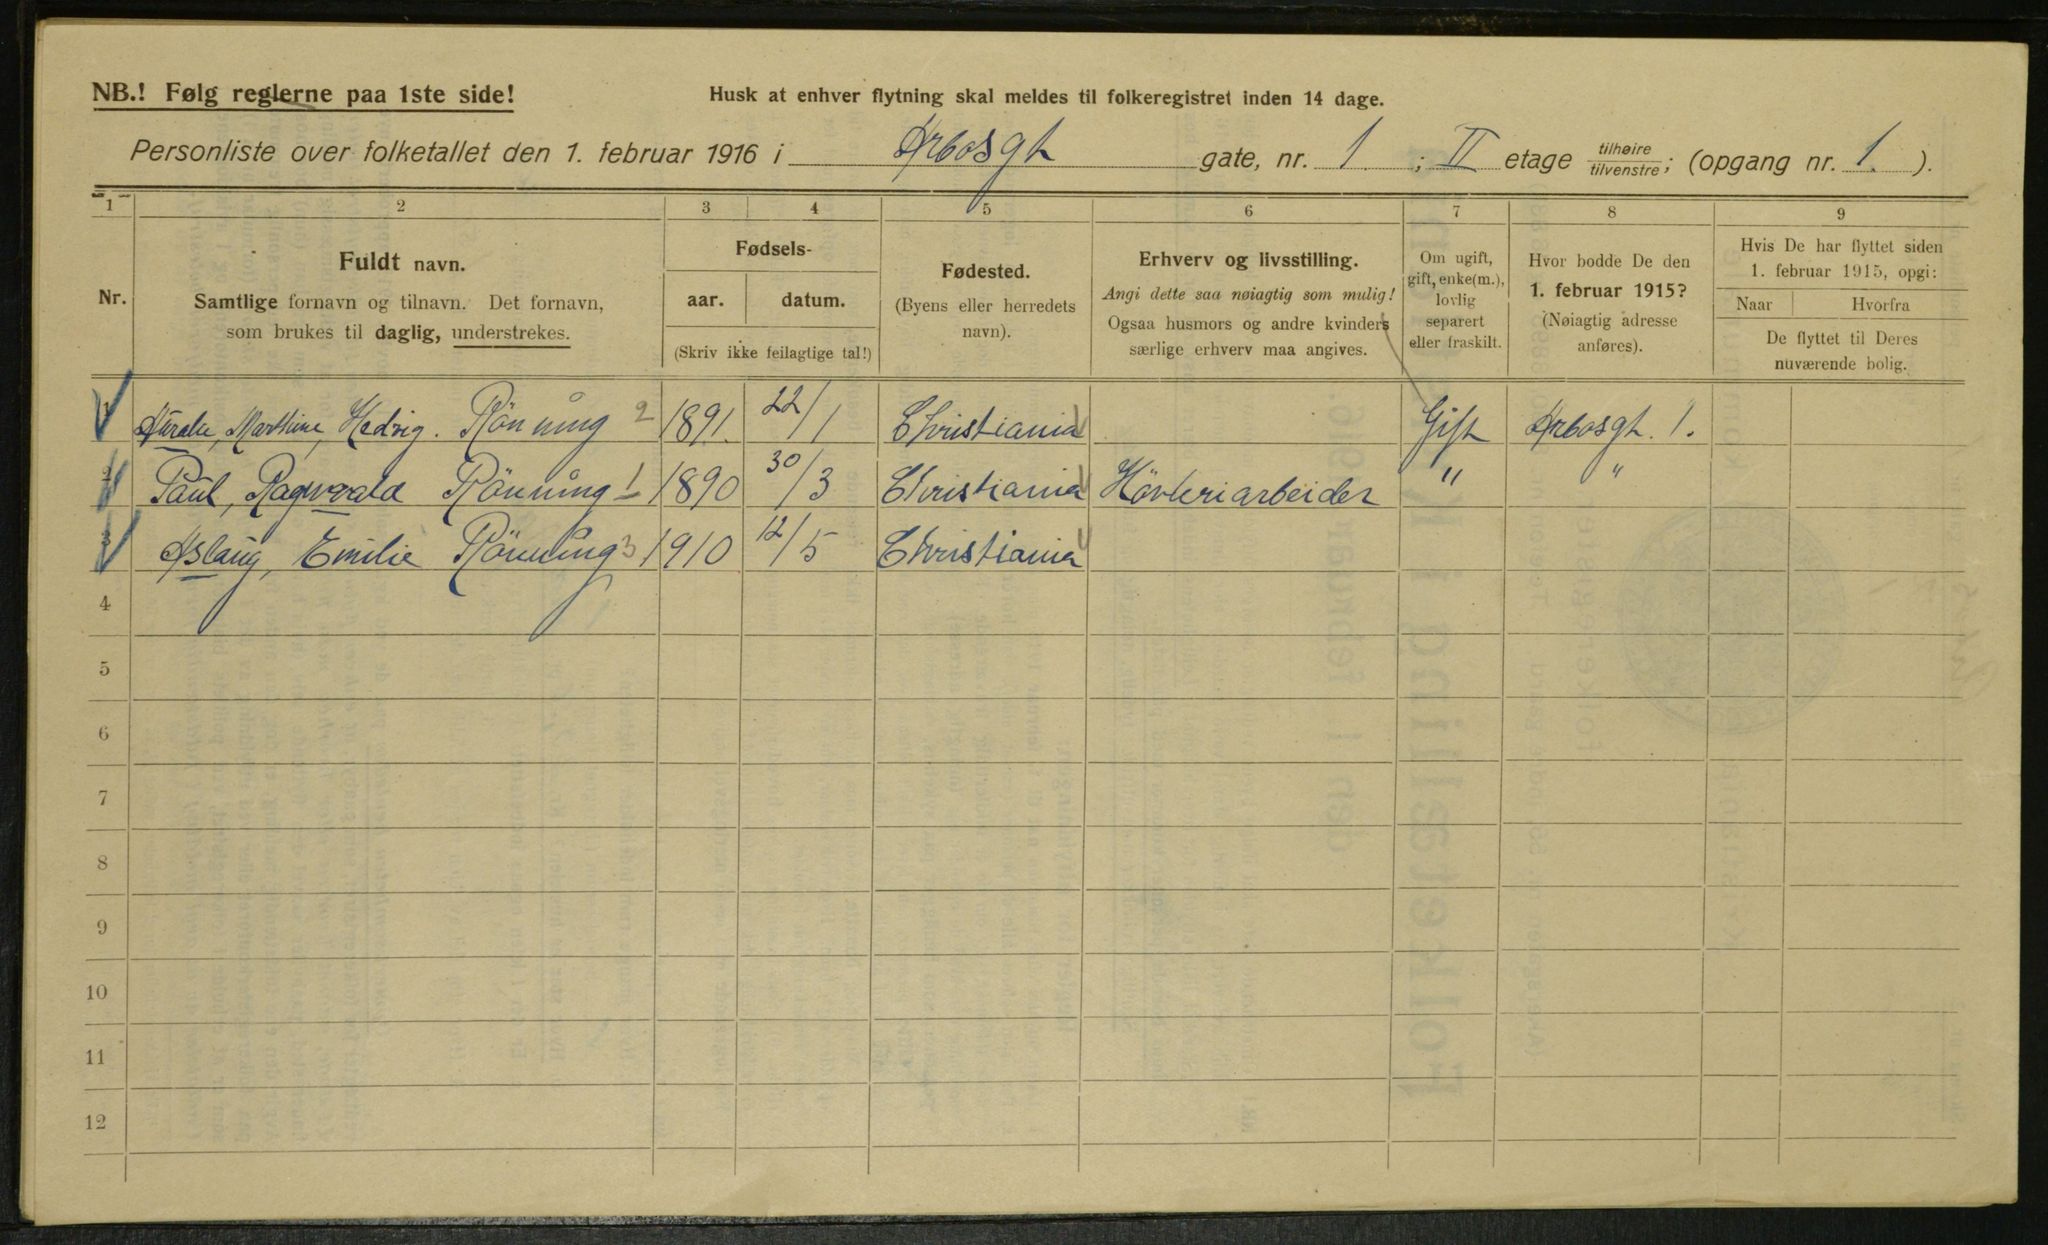 NB.! Følg reglerne paa 1ste side!
Husk at enhver flytning skal meldes til folkeregistret inden 14 dage.
Personliste over folketallet den 1. februar 1916 i Arbosgt gate, nr. 1; II etage tilhøire/tilvenstre; (opgang nr. 1.).
1 2 3 4 5 6 7 8 9
Nr.
Fuldt navn.
Samtlige fornavn og tilnavn. Det fornavn,
som brukes til daglig, understrekes.
Fødsels-
aar. datum.
(Skriv ikke feilagtige tal!)
Fødested.
(Byens eller herredets
navn).
Erhverv og livsstilling.
Angi dette saa nøiagtig som mulig!
Ogsaa husmors og andre kvinders
særlige erhverv maa angives.
Om ugift,
gift, enke(m.),
lovlig
separert
eller fraskilt.
Hvor bodde De den
1. februar 1915?
(Nøiagtig adresse
anføres).
Hvis De har flyttet siden
1. februar 1915, opgi:
Naar Hvorfra
De flyttet til Deres
nuværende bolig.
1 Marthine, Hedvig. Rönning 2 1891. 22/1 Christiania Gift Arbosgt. 1.
2 Paul, Ragnvald Rönning 1 1890 30/3 Christiania Hövleriarbeider " "
3 Aslaug, Emilie Rönning 3 1910 12/5 Christiania
4
5
6
7
8
9
10
11
12